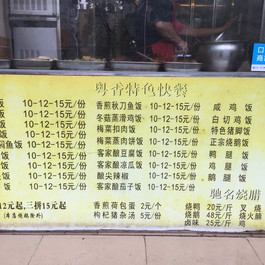 粤香特色快餐
饭 10-12-15元/份 香煎秋刀鱼饭 10-12-15元/份 咸鸡饭
饭 10-12-15元/份 冬菇蒸滑鸡饭 10-12-15元/份 白切鸡饭
饭 10-12-15元/份 梅菜扣肉饭 10-12-15元/份 特色猪脚饭
焖鱼饭 10-12-15元/份 梅菜肉饼饭 10-12-15元/份 正宗烧鹅饭
饭 10-12-15元/份 客家酿豆腐饭 10-12-15元/份 鸭腿饭
饭 10-12-15元/份 客家酿凉瓜饭 10-12-15元/份 鸡腿饭
饭 10-12-15元/份 酿尖辣椒 10-12-15元/份 鹅腿饭
饭 10-12-15元/份 客家酿茄子饭 10-12-15元/份
驰名烧腊
12元起,三拼15元起 香煎荷包蛋 2元/个 烧鸭 20元/斤 叉烧
枸杞猪杂汤 5元/份 烧鹅 48元/斤 烧火腩
卤味 25元/斤 鸡